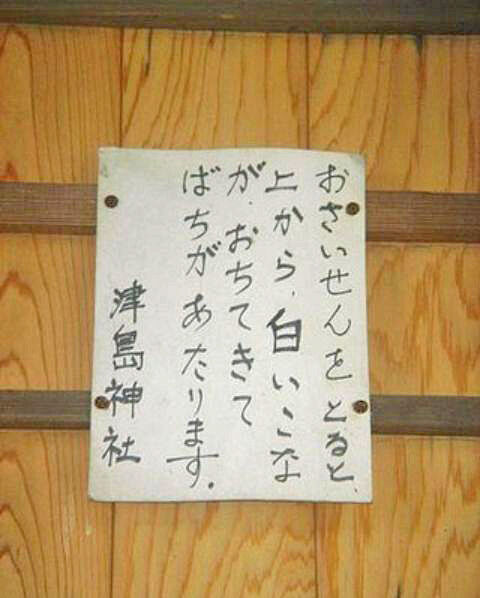 おさいせんをとると、
上から、白いこな
が、おちてきて
ばちがあたります。
津島神社